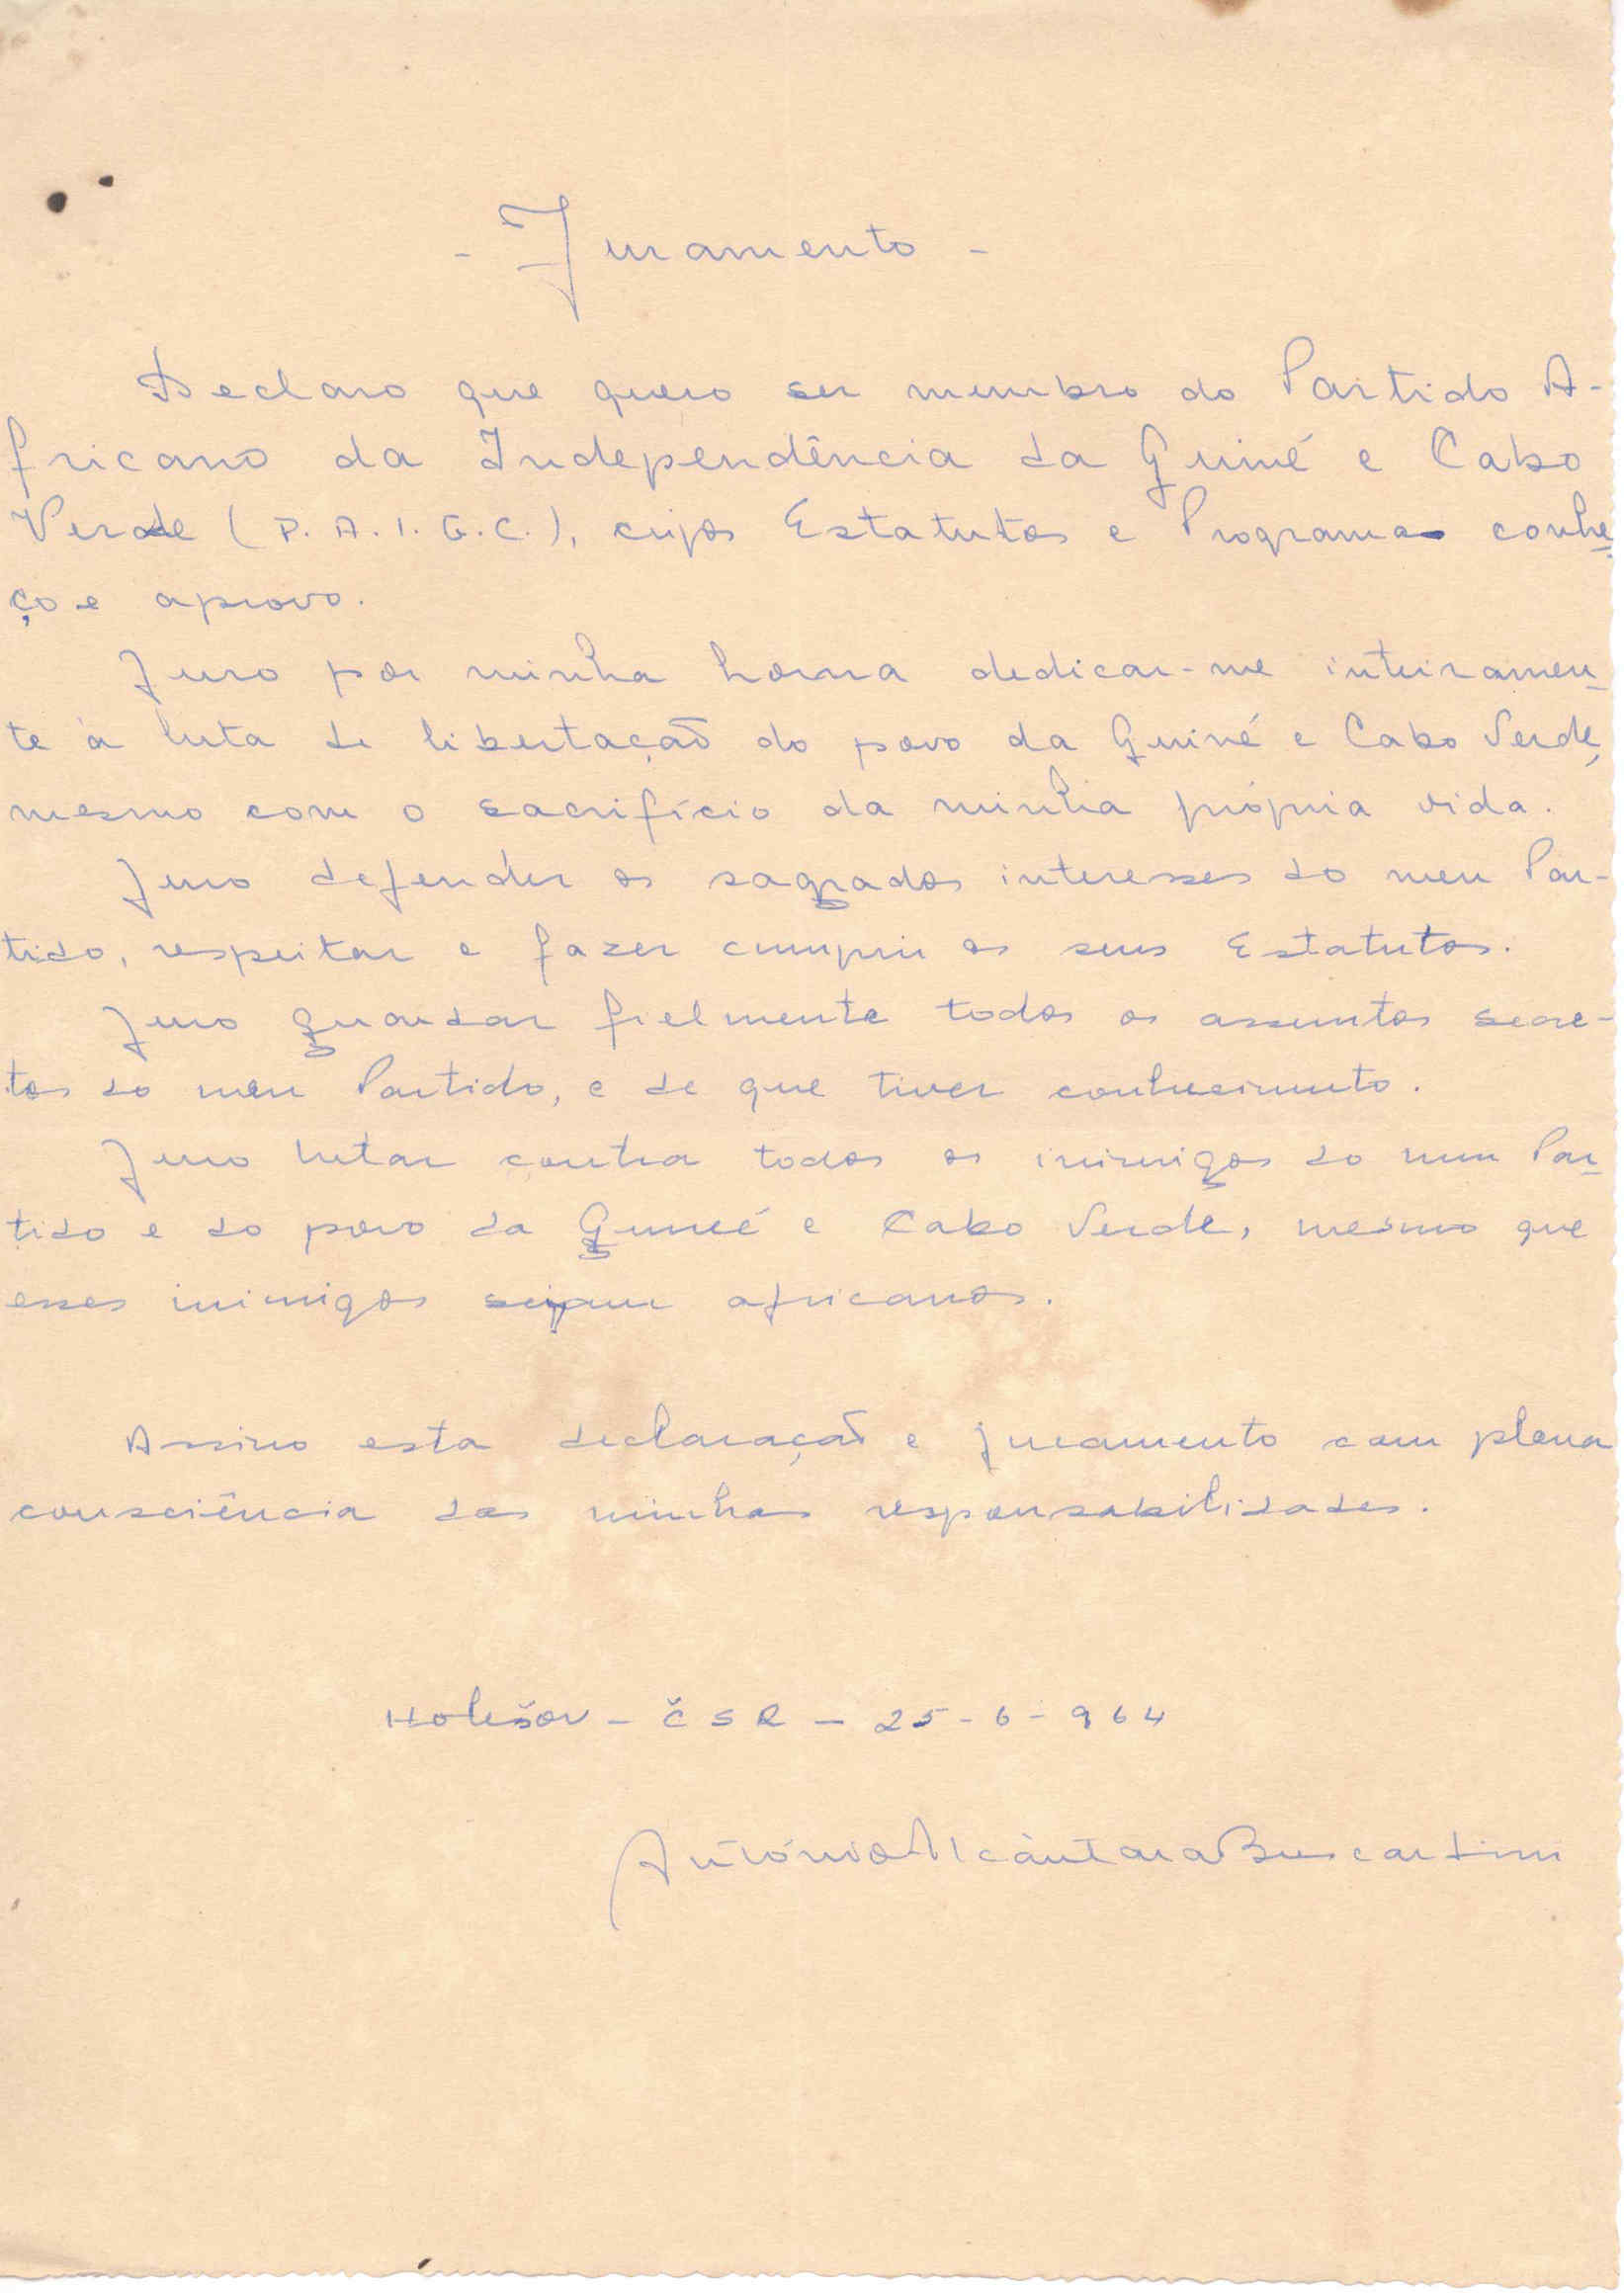 - Juramento -
Declaro que quero ser membro do Partido A-
fricano da Independência da Guiné e Cabo
Verde (P.A.I.G.C.), cujos Estatutos e Programa conhe-
ço e aprovo.
Juro por minha honra dedicar-me inteiramen-
te à luta de libertação do povo da Guiné e Cabo Verde,
mesmo com o sacrifício da minha própria vida.
Juro defender os sagrados interesses do meu Par-
tido, respeitar e fazer cumprir os seus Estatutos.
Juro guardar fielmente todos os assuntos secre-
tos do meu Partido, e de que tiver conhecimento.
Juro lutar contra todos os inimigos do meu Par-
tido e do povo da Guiné e Cabo Verde, mesmo que
esses inimigos sejam africanos.
Assino esta declaração e juramento com plena
consciência das minhas responsabilidades.
Holešov - ČSR - 25-6-964
António Alcântara Buscardini